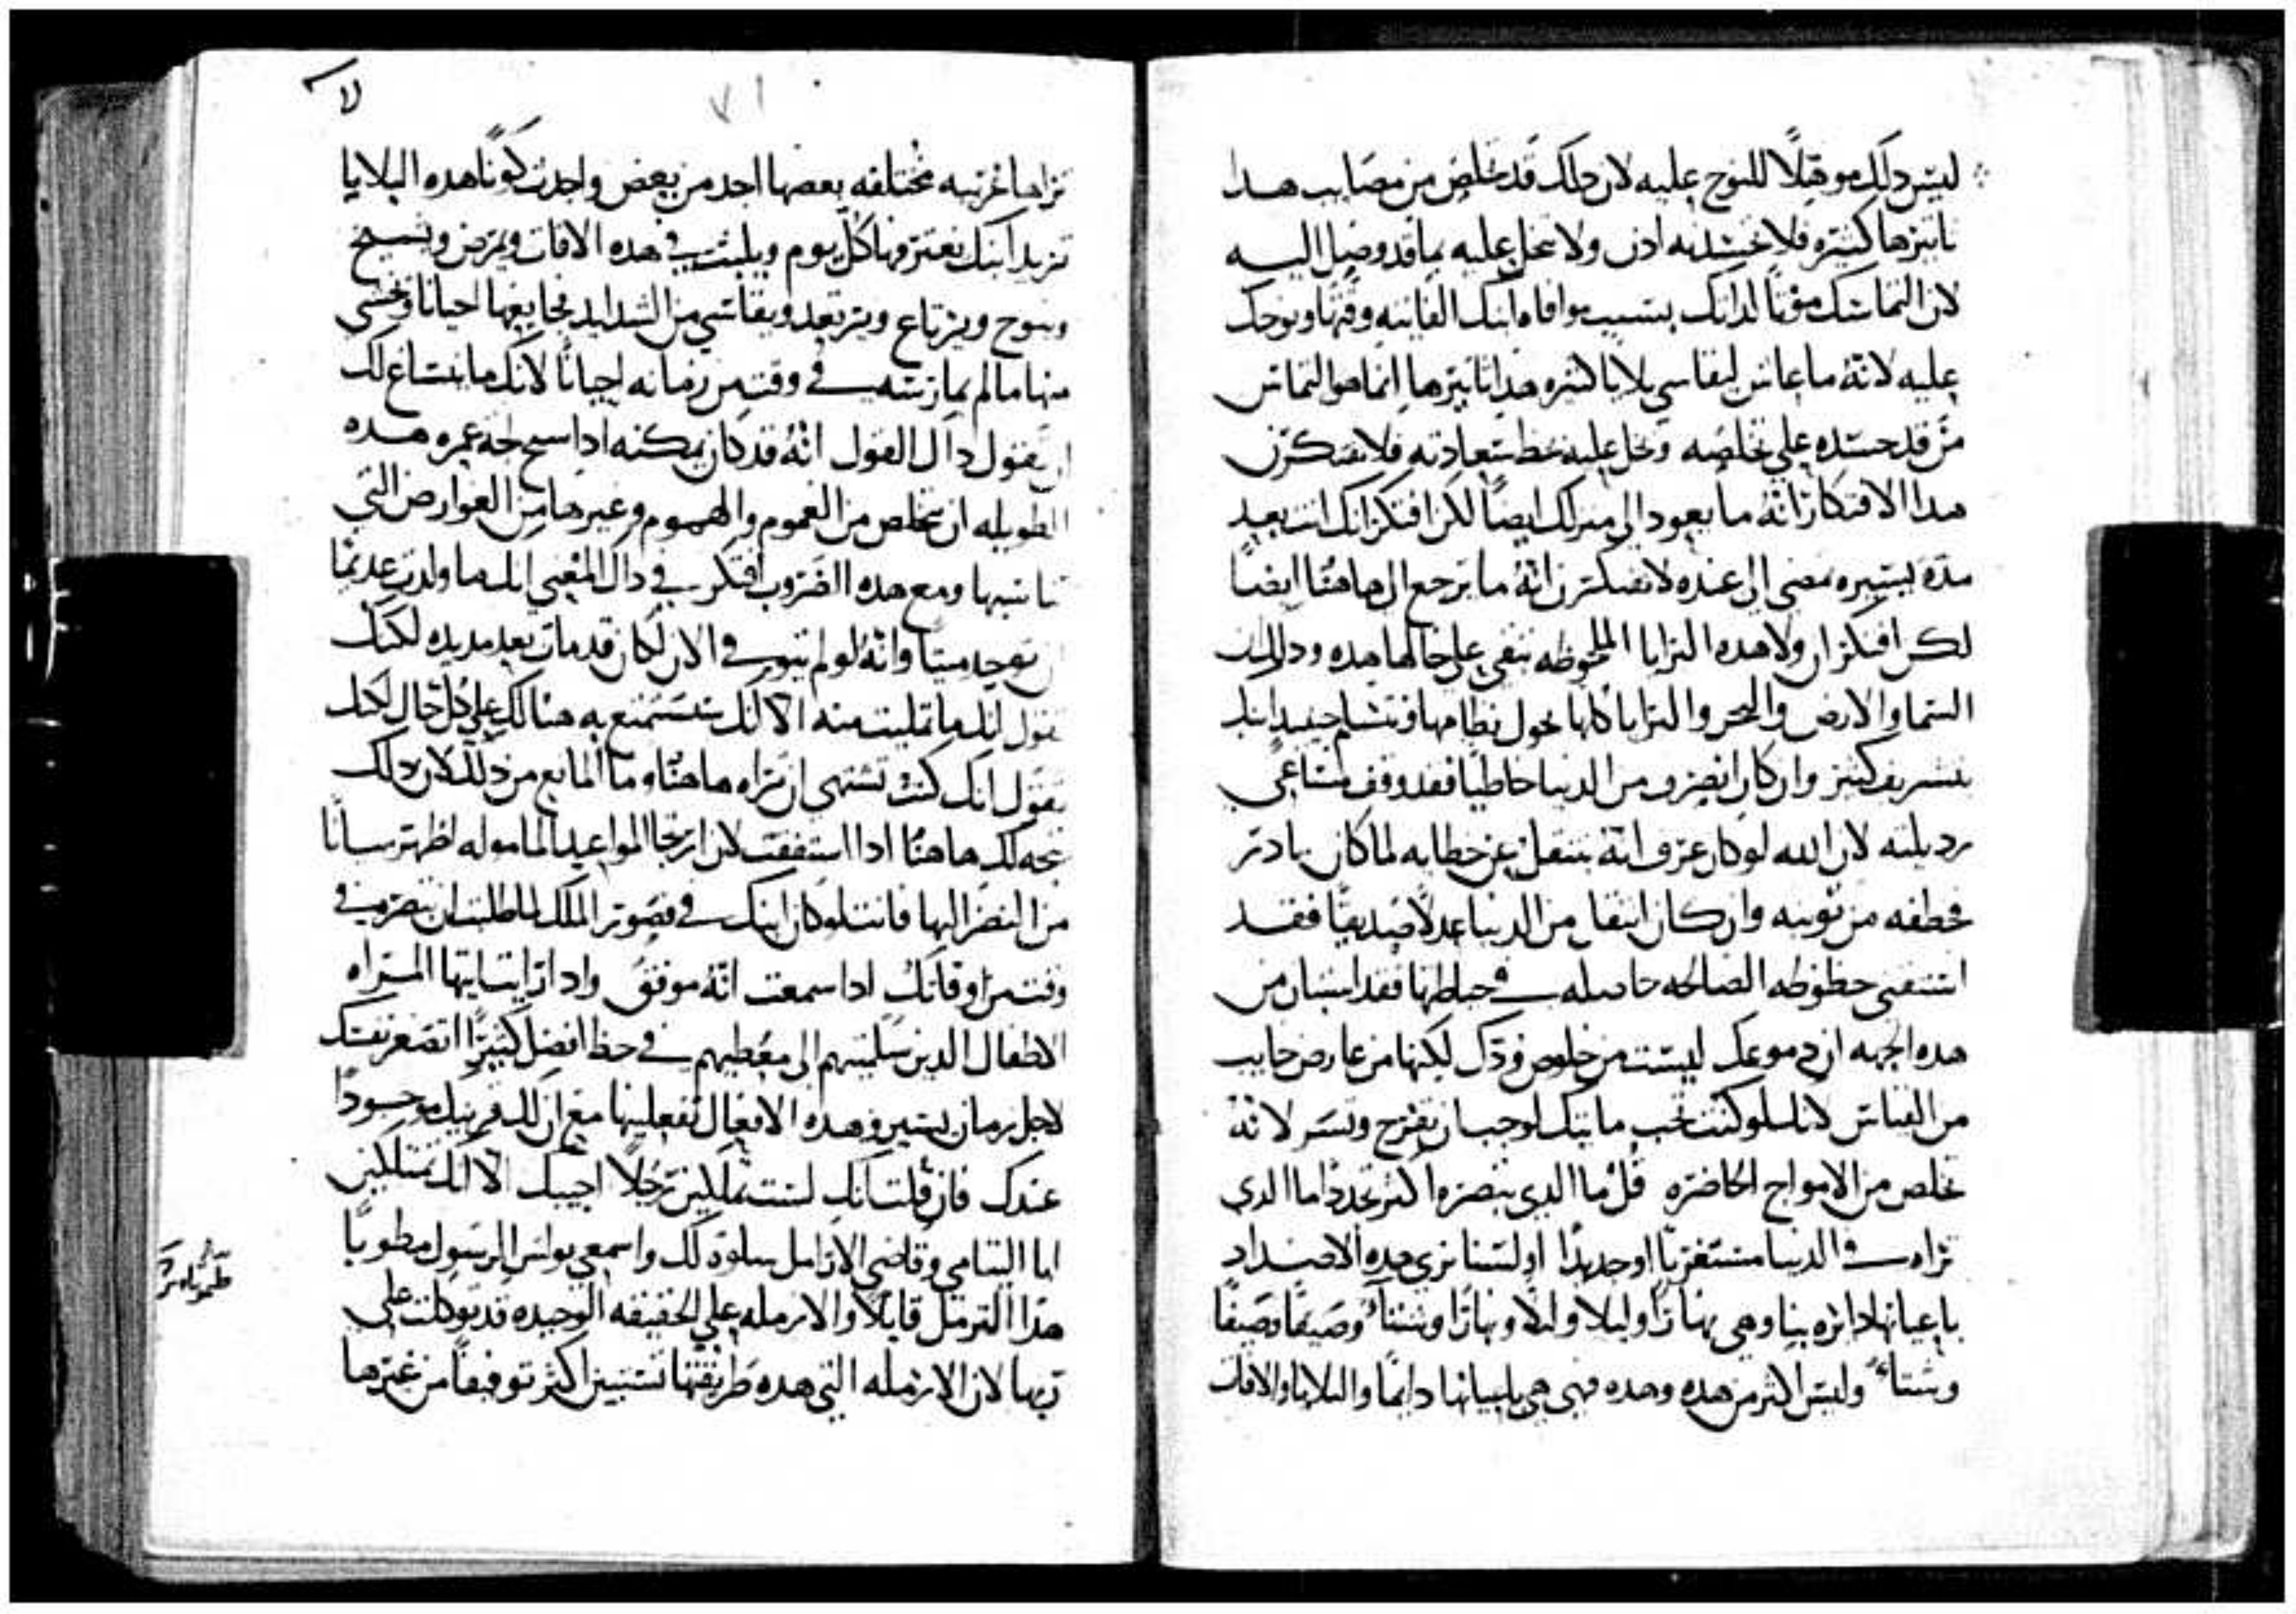 ليس دلك موهلًا للنوح عليه لان دلك قد تخلص من مصايب هدا
تاثيرها كثيره فلا تحسدنه ادن ولا تبخل عليه بما قد وصل اليه
لان التماسك موتًا لداتك بسبب موافاه ابنك الفانيه وقتها ونوحك
عليه لانهُ ما عاش ليقاسي بلايا كثيره هدا تاثيرها انما هو التماس
من قد حسده علي تخلصه وبخل عليه بحظ سعادته فلا تفتكرن
هدا الافتكار انهُ ما يعود الى منزلك ايضًا لكن افتكر انك انت بعد
مدّه يسيره تمضى الى عنده لا تفتكرن انهُ ما يرجع الى هاهنا ايضًا
لكن افتكر ان ولا هده البرايا الملحوظه تبقى علي حالها هده ودلك
السما والارض والبحر والبرايا كلها يحول نظامها وتتسلم حينيد ابنك
بتشريف كثير وان كان انصرف من الدنيا خاطيًا فقد وقف مساعي
رديلته لان الله لو كان عرف انهُ ينتقل عن خطايه لما كان بادر
فخطفه من توبته وان كان انتقل من الدنيا عدلًا صديقًا فقد
استقنى حظوظه الصالحه حاصله في حياطتها فقد استبان من
هده الجهه ان دموعك ليست من خلوص ودّك لكنها من عارض خايب
من القياس لانك لو كنت تحب مايتك لوجب ان تفرح وتسر لانهُ
تخلص من الامواج الحاضره قل ما الدي تبصره اكثر تجددًا ما الدي
تراه في الدنيا مستغربًا او جديدًا اولسنا نرى هده الاضداد
باعيانها دايره بينا وهي نهارًا وليلا وليلًا ونهارًا وشتاءً وصيفًا وصيفًا
وشتاءً وليس اكثر من هده وهده فهي هي باعيانها دايمًا والبلايا والافات
لا
٧١
تراها غريبه مختلفه بعضها احد من بعض واحدث كونًا هده البلايا
تريد ابنك يعتبرفها كل يوم ويلبث في هده الافات ويمرض ويسيح
وينوح ويرتاع ويرتعد ويقاسي من الشدايد فجايعها احيانًا ويخشى
منها ما لم يمارسه في وقت من زمانه احيانًا لانك ما ينساغ لك
ان تقول دال القول انهُ قد كان يمكنه ادا سبح لجه عمره هده
الطويله ان يتخلص من الغموم والهموم وغيرها من العوارض التي
تناسبها ومع هده الضروب افتكر في دال المعنى انك ما ولدت عديمًا
ان يوجد ميتًا وانهُ لو لم يتوف في الان لكان قد مات بعد مديده لكنك
تقول انك ما تمليت منه الا انك ستستمتع به هنالك علي كل حال لكنك
تقول انك كنت تشتهي ان تراه هاهنا وما المانع من دلك لان دلك
يتجه لك هاهنا ادا استفقت لان ارتجا المواعيد الماموله اظهر بيانًا
من النضر اليها فانت لو كان ابنك في قصور الملك لما طلبت ان تبصريه في
وقت من اوقاتك ادا سمعت انهُ موفق وادا رايت ايتها المراه
الاطفال الدين سلميهم الى معطيهم في حظ افضل كثيرًا اتصغر نفسك
لاجل زمان يسير وهده الافعال تفعلينها مع ان لك قرينك موجودًا
عندك فان قلت انك لست تملكين رجلًا اجيبك الا انك تمتلكين
ابا اليتامي وقاضي الارامل سلوة لك واسمعي بولس الرسول مطوبًا
هدا الترمل قايلًا والارمله علي الحقيقه الوحيده قد توكلت علي
ربها لان الارمله التي هده طريقتها تستبين اكثر توفيقًا من غيرها